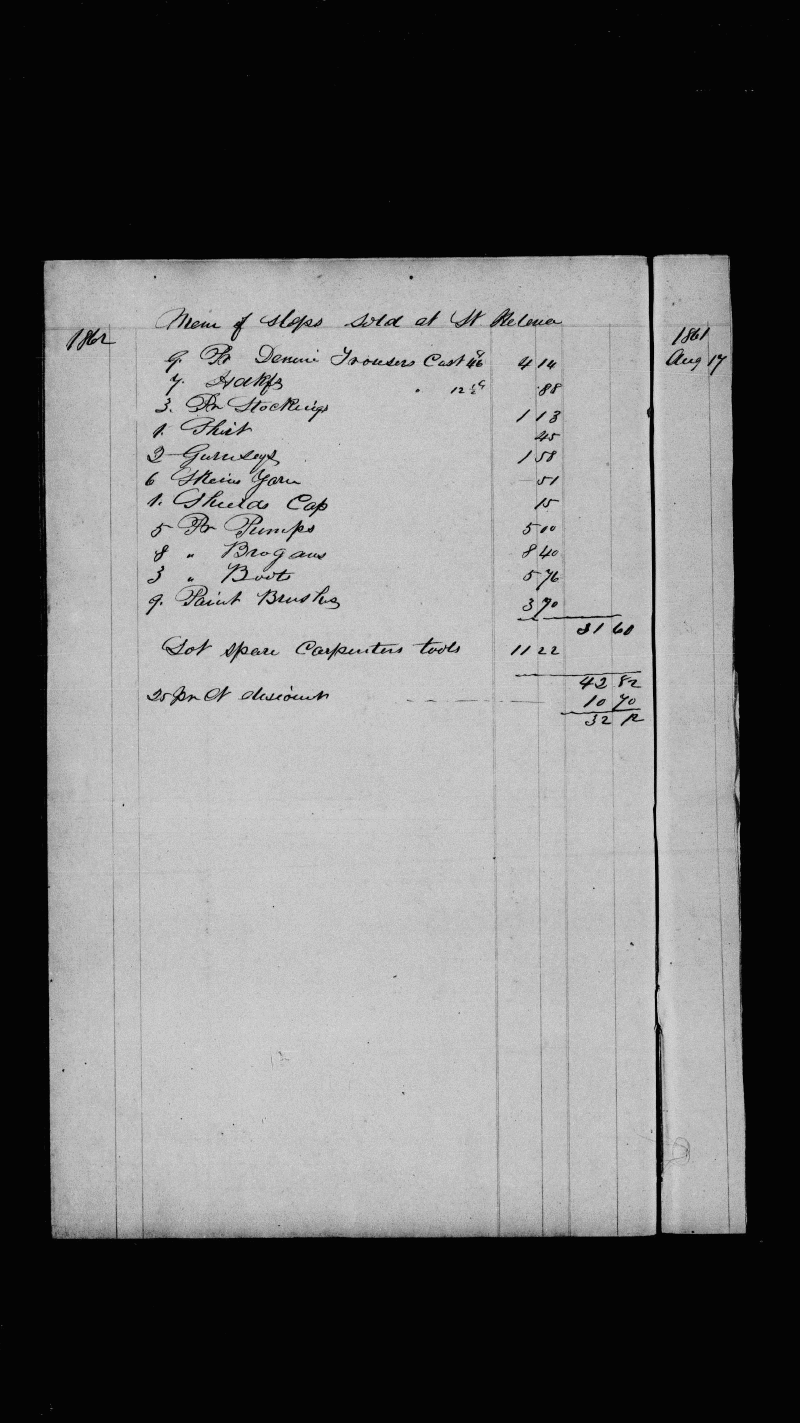 1862
Mem of slops sold at St Helena
9. Pr Denim Trousers Cost 46 4 14
7. Hdkfs " 12 ½ c 88
3. Pr Stockings 1 13
1. Shirt 45
2 Gurnseys 1 58
6 Skeins Yarn 51
1. Shields Cap 15
5 Pr Pumps 5 00
8 " Brogans 8 40
3 " Boots 5 76
9. Paint Brushes 3 70
31 60
Lot spare Carpenters tools 11 22
42 82
25 pr Ct discount 10 70
32 12
1861
Aug 17